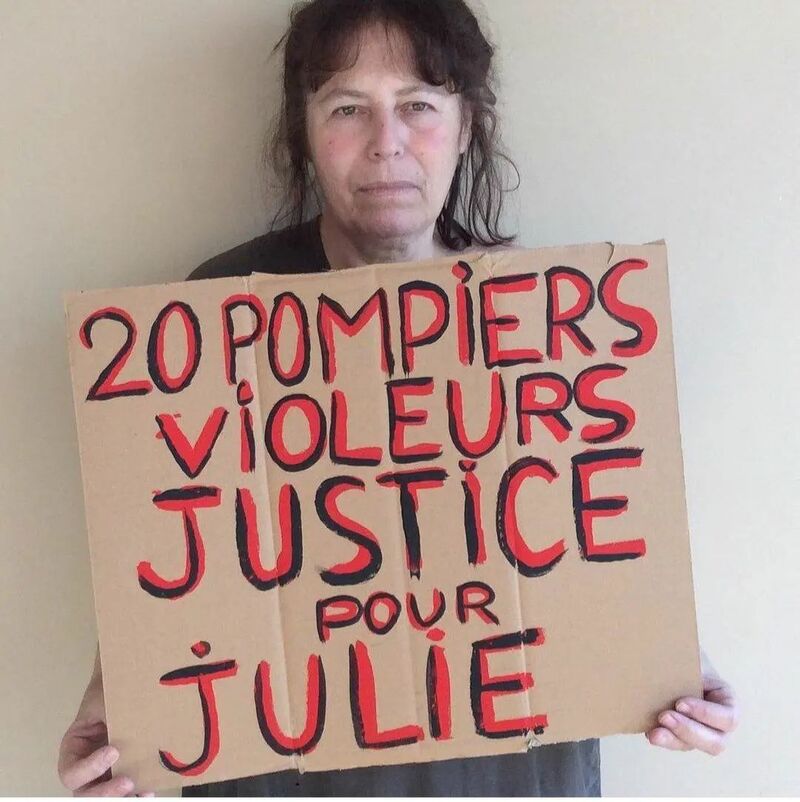 20 POMPiERS
ViOLEURS
JUSTiCE
POUR
JULiE